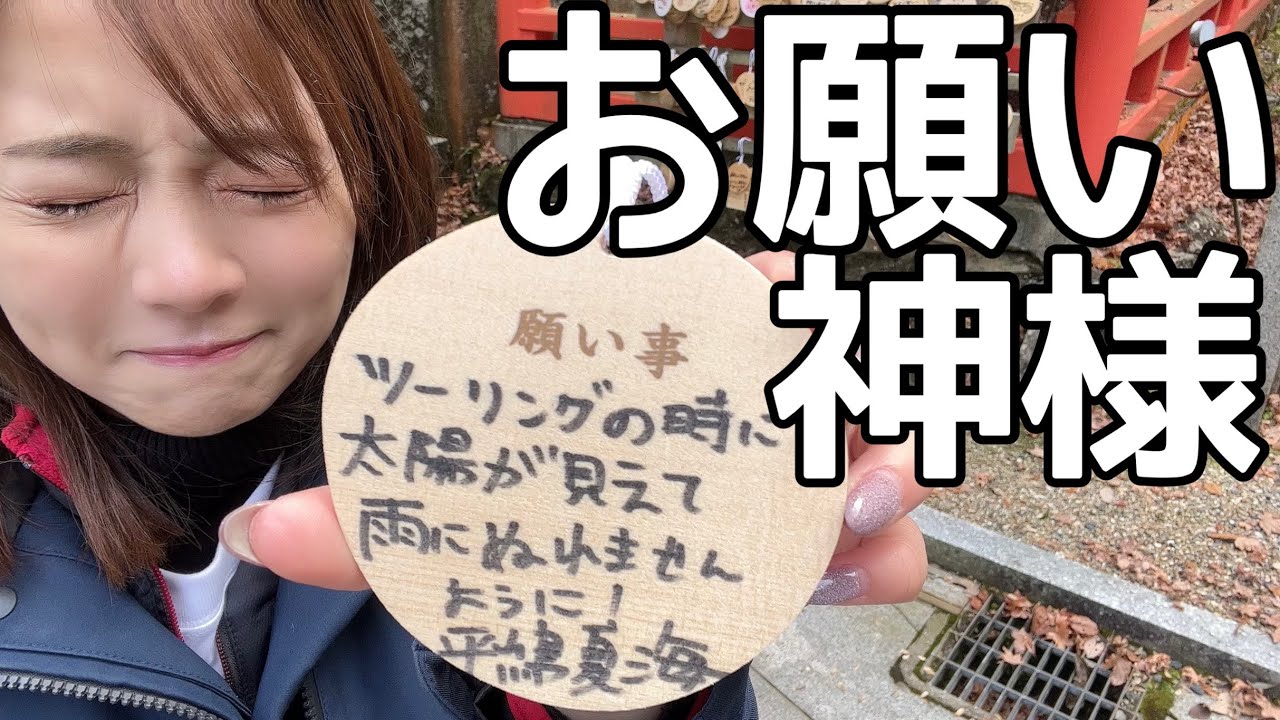 お願い
神様
願い事
ツーリングの時に
太陽が見えて
雨にぬれません
ように！
平嶋夏海